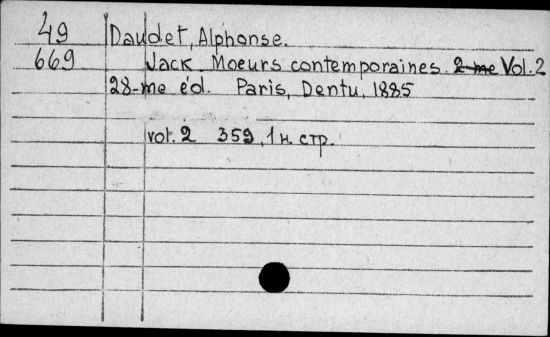 49 Daudet, Alphonse.
669 Jack Moeurs contemporaines. Vol. 2
28-me éd. Paris, Dentu, 1885
vol. 2 359, 1 н. стр.